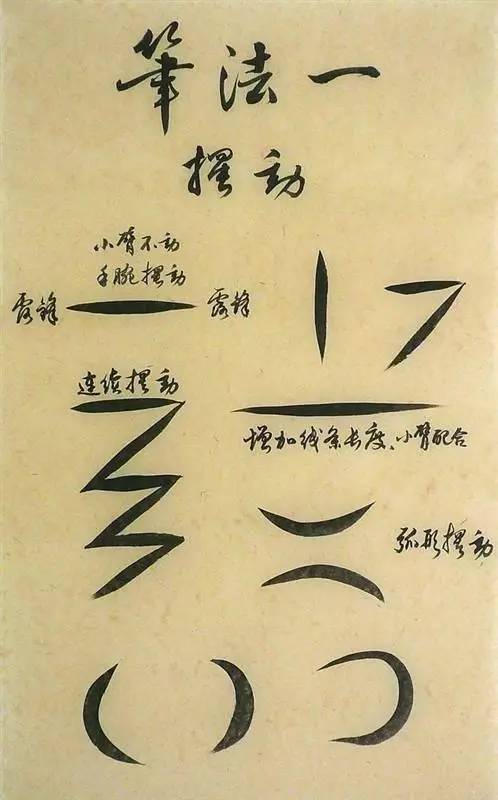 筆法一
摆動
小臂不动
手腕摆动
露锋
露锋
连续摆动
增加线条长度、小臂配合
弧形摆动